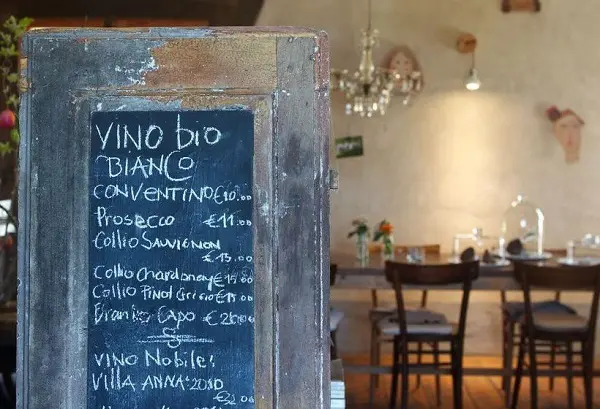 VINO bio
BIANCO
CONVENTINO €10.00
Prosecco €11.00
Collio Sauvignon
€15.00
Collio Chardonnay €15.00
Collio Pinot Grigio €15.00
Capo €26.00
VINO Nobile!
VILLA ANNA' 2010
€32.00